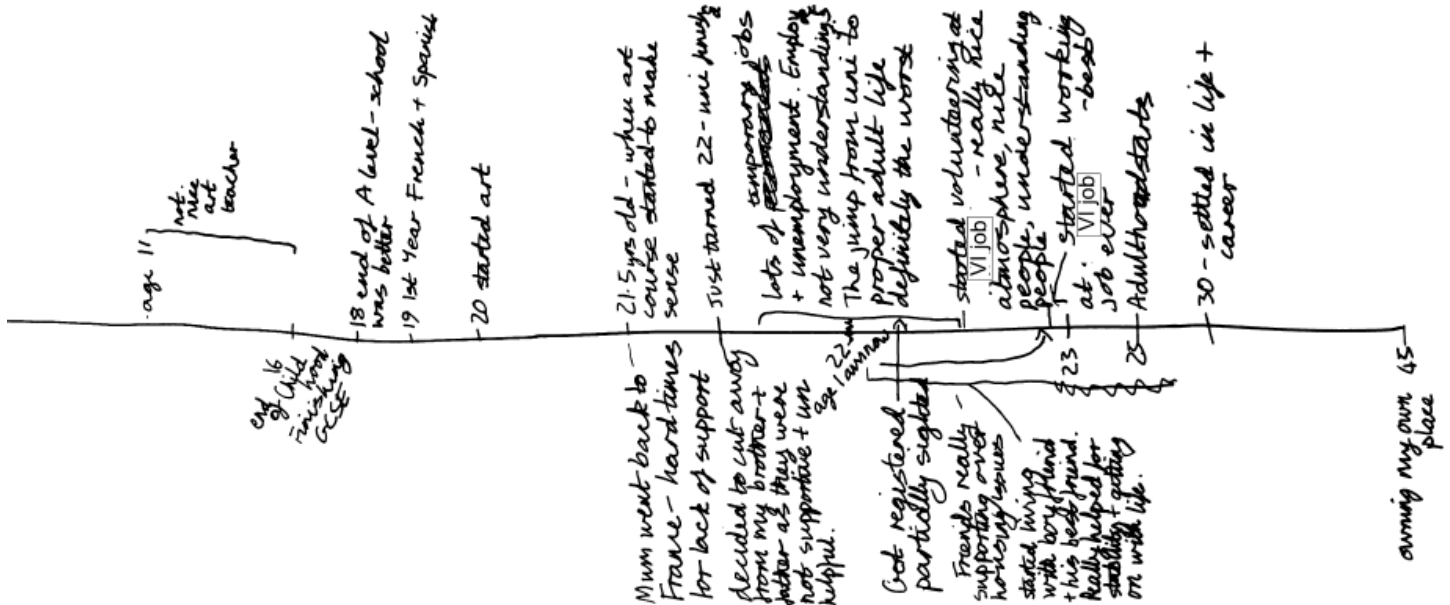 age 11
not
nice
art
teacher
16
end
of Child
hood
Finishing
GCSE
18 end of A level - school
was better
19 1st Year French + Spanish
20 started art
21.5 yrs old - when art
course started to make
sense
Mum went back to
France - hard times
for lack of support
Just turned 22 - uni finish
decided to cut away
from my brother +
father as they were
not supportive + un
helpful.
lots of temporary jobs
+ unemployment. Employ
not very understanding.
The jump from uni to
proper adult life
definitely the worst
22
age I am now
Got registered
partially sighted
started volunteering at
VI job - really nice
atmosphere, nice
people, understanding
people
Friends really -
supporting over
housing issues
started living
with boyfriend
+ his best friend.
Really helped for
stability + getting
on with life.
23
started working
at VI job - best
job ever
25
Adulthood starts
30 - settled in life +
career
45
owning my own
place